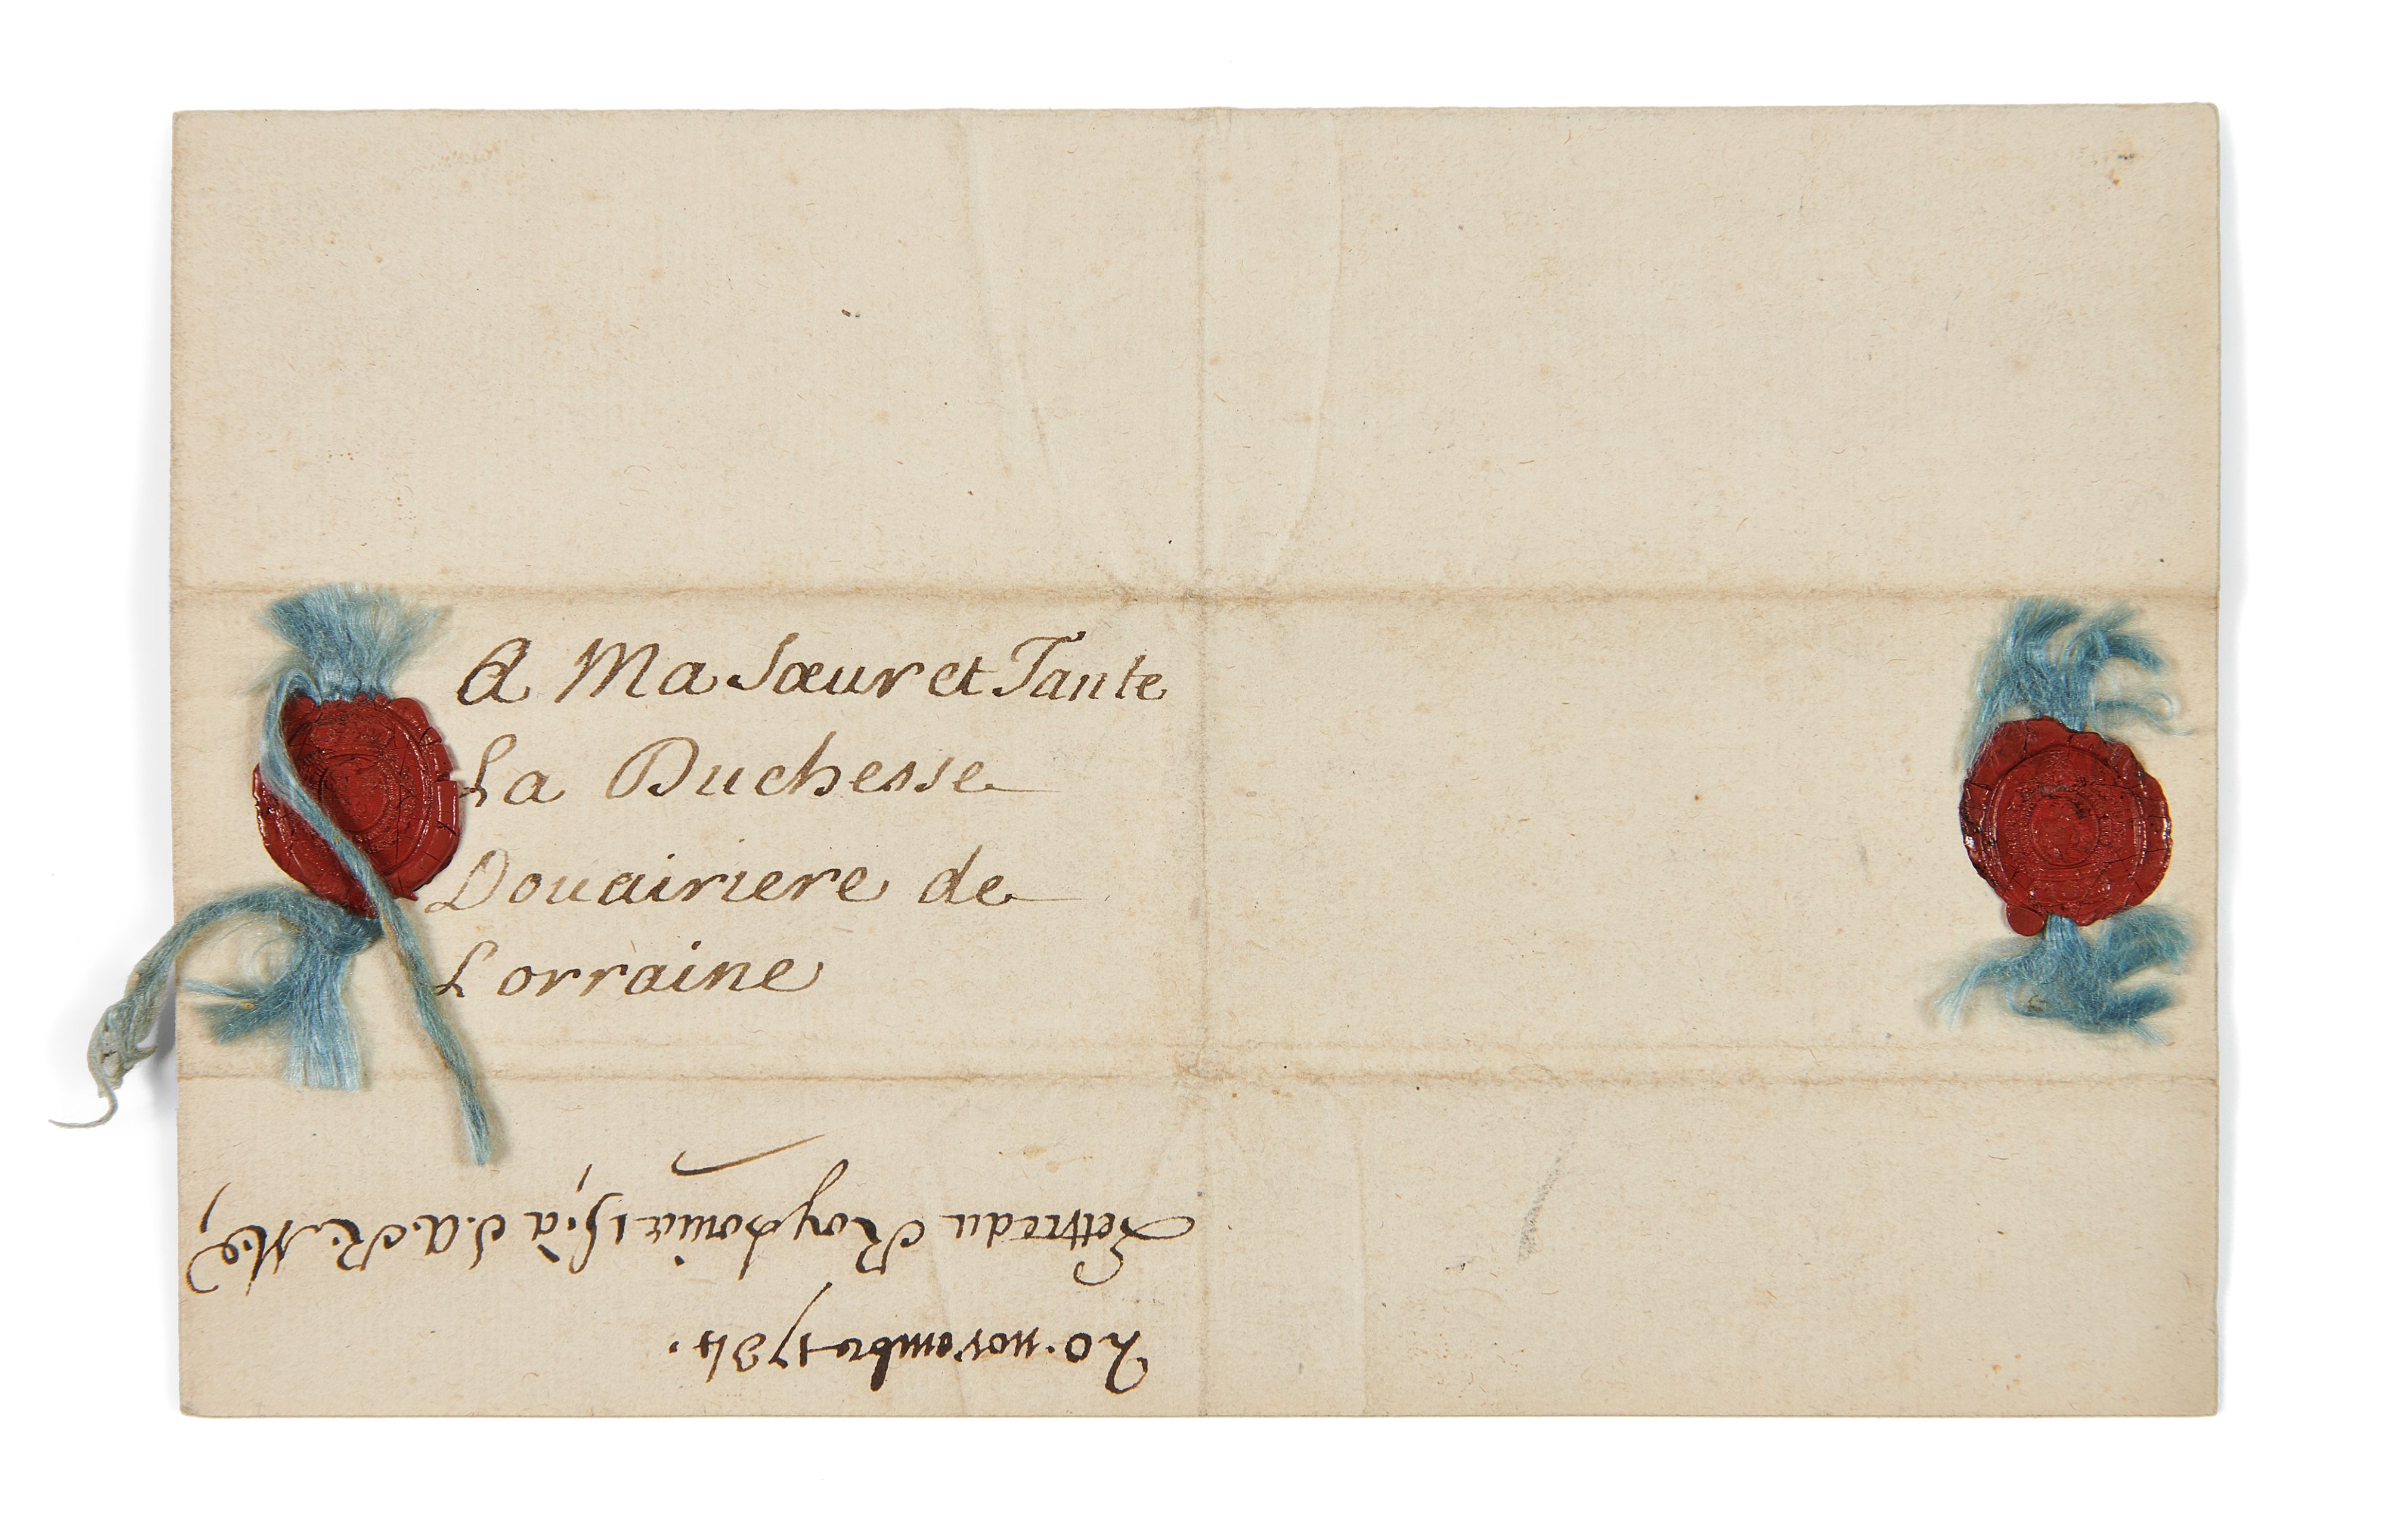 A Ma Sœur et Tante
La Duchesse
Douairiere de
Lorraine
Lettre du Roy Louis 15; à S. A. R. Me,
20. novembre 1734.